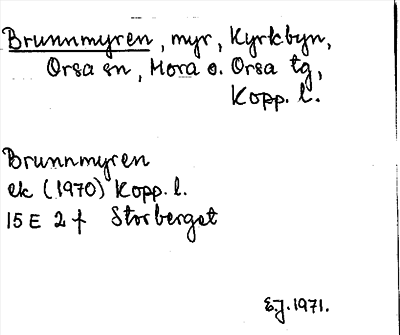 Brunnmyren, myr, Kyrkbyn,
Orsa sn, Mora o. Orsa tg,
Kopp. l.
Brunnmyren
ek (1970) Kopp. l.
15 E 2 f Storberget
E.J. 1971.